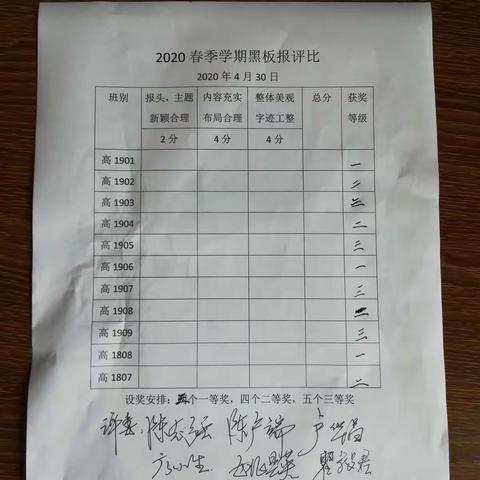 2020 春季学期黑板报评比
2020 年 4 月 30 日
班别 报头，主题新颖合理 内容充实布局合理 整体美观字迹工整 总分 获奖等级
2 分 4 分 4 分
高 1901 一
高 1902 二
高 1903
高 1904 二
高 1905 三
高 1906 一
高 1907 三
高 1908
高 1909 三
高 1808 一
高 1807 二
设奖安排：个一等奖，四个二等奖，五个三等奖
评委：陈志强 陈广端